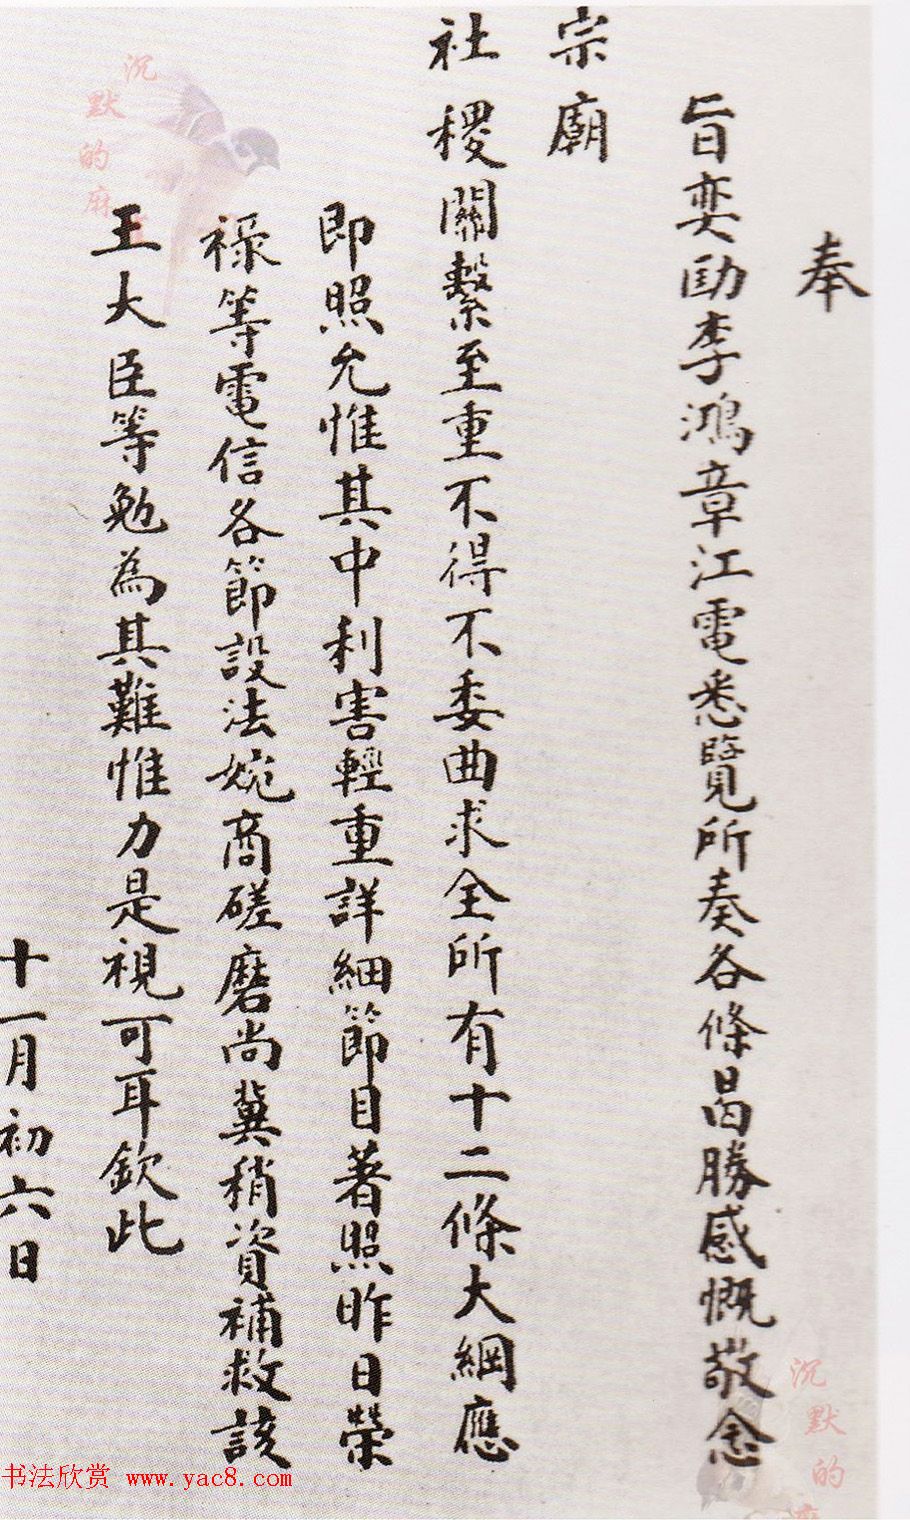 奉
旨奕劻李鴻章江電悉覽所奏各條曷勝感慨敬念
宗廟
社稷關繫至重不得不委曲求全所有十二條大綱應
即照允惟其中利害輕重詳細節目著照昨日榮
祿等電信各節設法婉商磋磨尚冀稍資補救該
王大臣等勉為其難惟力是視可耳欽此
十一月初六日
沉默的麻
沉默的
书法欣赏 www.yac8.com